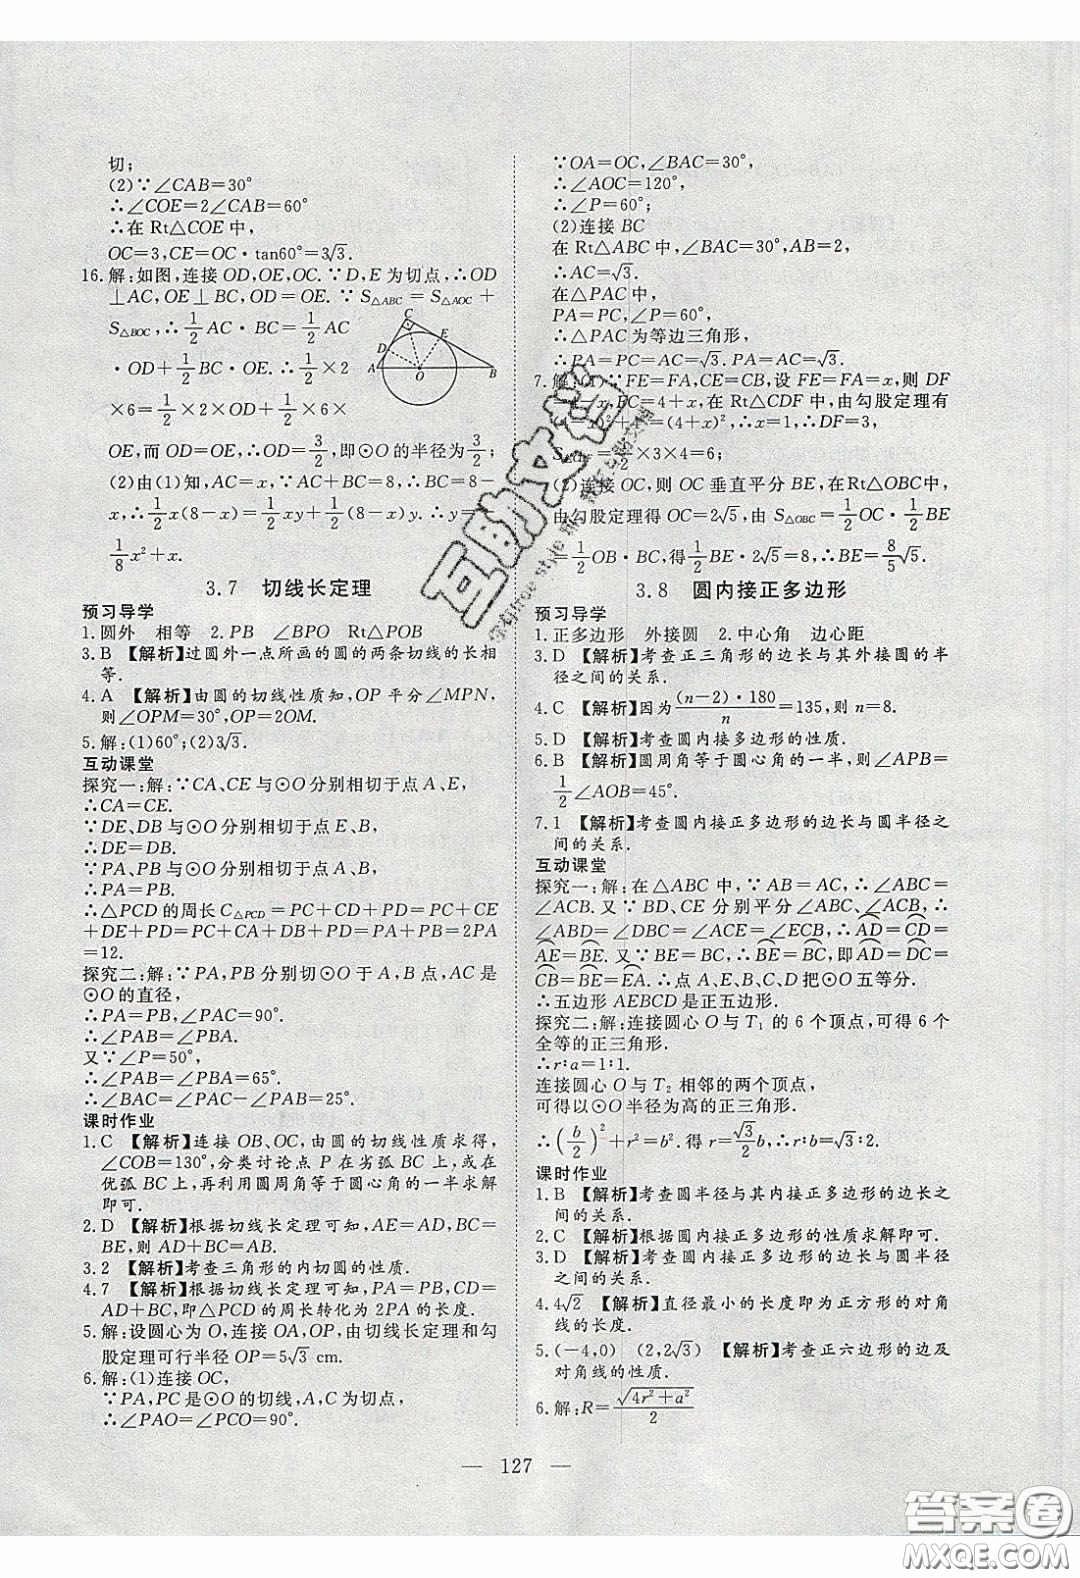 切;
(2)∵∠CAB=30°
∴∠COE=2∠CAB=60°
∴在 Rt△COE 中,
OC=3,CE=OC·tan60°=3√3.
16.解:如图,连接 OD,OE,OC.∵D,E 为切点,∴OD
⊥AC,OE⊥BC,OD=OE.∵S△ABC=S△AOC+
S△BOC,∴1/2 AC·BC=1/2 AC
·OD+1/2 BC·OE.∴1/2×2
×6=1/2×2×OD+1/2×6×
OE,而 OD=OE,∴OD=3/2,即⊙O 的半径为3/2;
(2)由(1)知,AC=x,∵AC+BC=8,∴BC=8-
x,∴1/2 x(8-x)=1/2 xy+1/2(8-x)y.∴y=
1/8 x²+x.
C
D
E
A
O
B
3.7 切线长定理
预习导学
1.圆外 相等 2.PB ∠BPO Rt△POB
3.B 【解析】过圆外一点所画的圆的两条切线的长相
等.
4.A 【解析】由圆的切线性质知,OP 平分∠MPN,
则∠OPM=30°,OP=2OM.
5.解:(1)60°;(2)3√3.
互动课堂
探究一:解:∵CA、CE与⊙O分别相切于点A、E,
∴CA=CE.
∵DE、DB 与⊙O分别相切于点E、B,
∴DE=DB.
∵PA、PB与⊙O分别相切于点A、B,
∴PA=PB.
∴△PCD的周长 C△PCD=PC+CD+PD=PC+CE
+DE+PD=PC+CA+DB+PD=PA+PB=2PA
=12.
探究二:解:∵PA,PB 分别切⊙O 于 A,B 点,AC 是
⊙O的直径,
∴PA=PB,∠PAC=90°.
∴∠PAB=∠PBA.
又∵∠P=50°,
∴∠PAB=∠PBA=65°.
∴∠BAC=∠PAC-∠PAB=25°.
课时作业
1.C 【解析】连接 OB、OC,由圆的切线性质求得,
∠COB=130°,分类讨论点 P 在劣弧 BC 上,或在
优弧 BC 上,再利用圆周角等于圆心角的一半求解
即可.
2.D 【解析】根据切线长定理可知,AE=AD,BC=
BE,则 AD+BC=AB.
3.2 【解析】考查三角形的内切圆的性质.
4.7 【解析】根据切线长定理可知,PA=PB,CD=
AD+BC,即△PCD的周长转化为2PA的长度.
5.解:设圆心为O,连接OA,OP,由切线长定理和勾
股定理可行半径 OP=5√3 cm.
6.解:(1)连接 OC,
∵PA,PC 是⊙O 的切线,A,C 为切点,
∴∠PAO=∠PCO=90°.
∵OA=OC,∠BAC=30°,
∴∠AOC=120°,
∴∠P=60°;
(2)连接 BC
在 Rt△ABC 中,∠BAC=30°,AB=2,
∴AC=√3.
在△PAC 中,
PA=PC,∠P=60°,
∴△PAC 为等边三角形,
∴PA=PC=AC=√3.PA=AC=√3.
∵FE=FA,CE=CB,设 FE=FA=x,则 DF
BC=4+x,在 Rt△CDF中,由勾股定理有
=(4+x)²,∴x=1,∴DF=3,
×3×4=6;
(2)连接OC,则 OC 垂直平分BE,在Rt△OBC中,
由勾股定理得 OC=2√5,由 S△OBC=1/2 OC·1/2 BE
=1/2 OB·BC,得1/2 BE·2√5=8,∴BE=8/5 √5.
3.8 圆内接正多边形
预习导学
1.正多边形 外接圆 2.中心角 边心距
3.D 【解析】考查正三角形的边长与其外接圆的半
径之间的关系.
4.C 【解析】因为(n-2)·180/n=135,则 n=8.
5.D 【解析】考查圆内接多边形的性质.
6.B 【解析】圆周角等于圆心角的一半,则∠APB=
1/2∠AOB=45°.
7.1 【解析】考查圆内接正多边形的边长与圆半径之
间的关系.
互动课堂
探究一:解:在△ABC 中,∵AB=AC,∴∠ABC=
∠ACB.又∵BD、CE 分别平分∠ABC、∠ACB,∴
∠ABD=∠DBC=∠ACE=∠ECB,∴⌒AD=⌒CD=
⌒AE=⌒BE.∵∠DBC=∠BAC,∴⌒CD=⌒CB.∴⌒AD=⌒CD=
⌒CB=⌒BE=⌒EA.∴点 A、E、B、C、D 把⊙O 五等分.
∴五边形 AEBCD是正五边形.
探究二:解:连接圆心O 与 T₁ 的 6 个顶点,可得 6 个
全等的正三角形.
∴r∶a=1∶1.
连接圆心 O 与 T₂ 相邻的两个顶点,
可得以⊙O 半径为高的正三角形.
∴(b/2)²+r²=b².得 r=√3/2 b,∴r∶b=√3∶2.
课时作业
1.B 【解析】考查圆半径与其内接正多边形的边长之
间的关系.
2.C 【解析】根据圆内接正多边形的性质求解即可.
3.D 【解析】考查圆内接正多边形的边长与圆半径
之间的关系.
4.4√2 【解析】直径最小的长度即为正方形的对角
线的长度.
5.(-4,0) (2,2√3) 【解析】考查正六边形的边及
对角线的性质.
6.解:R=√(4r²+a²)/2
— 127 —
互助文档
答案圈
MXQE.COM